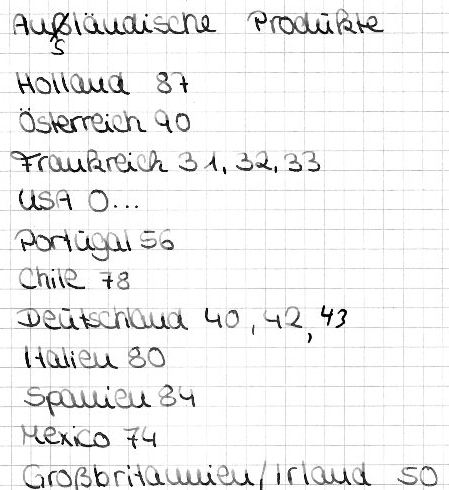 Außländische Produkte
s
Holland 87
Österreich 90
Frankreich 31, 32, 33
USA 0...
Portugal 56
Chile 78
Deutschland 40, 42, 43
Italien 80
Spanien 84
Mexico 74
Großbritannien/Irland 50